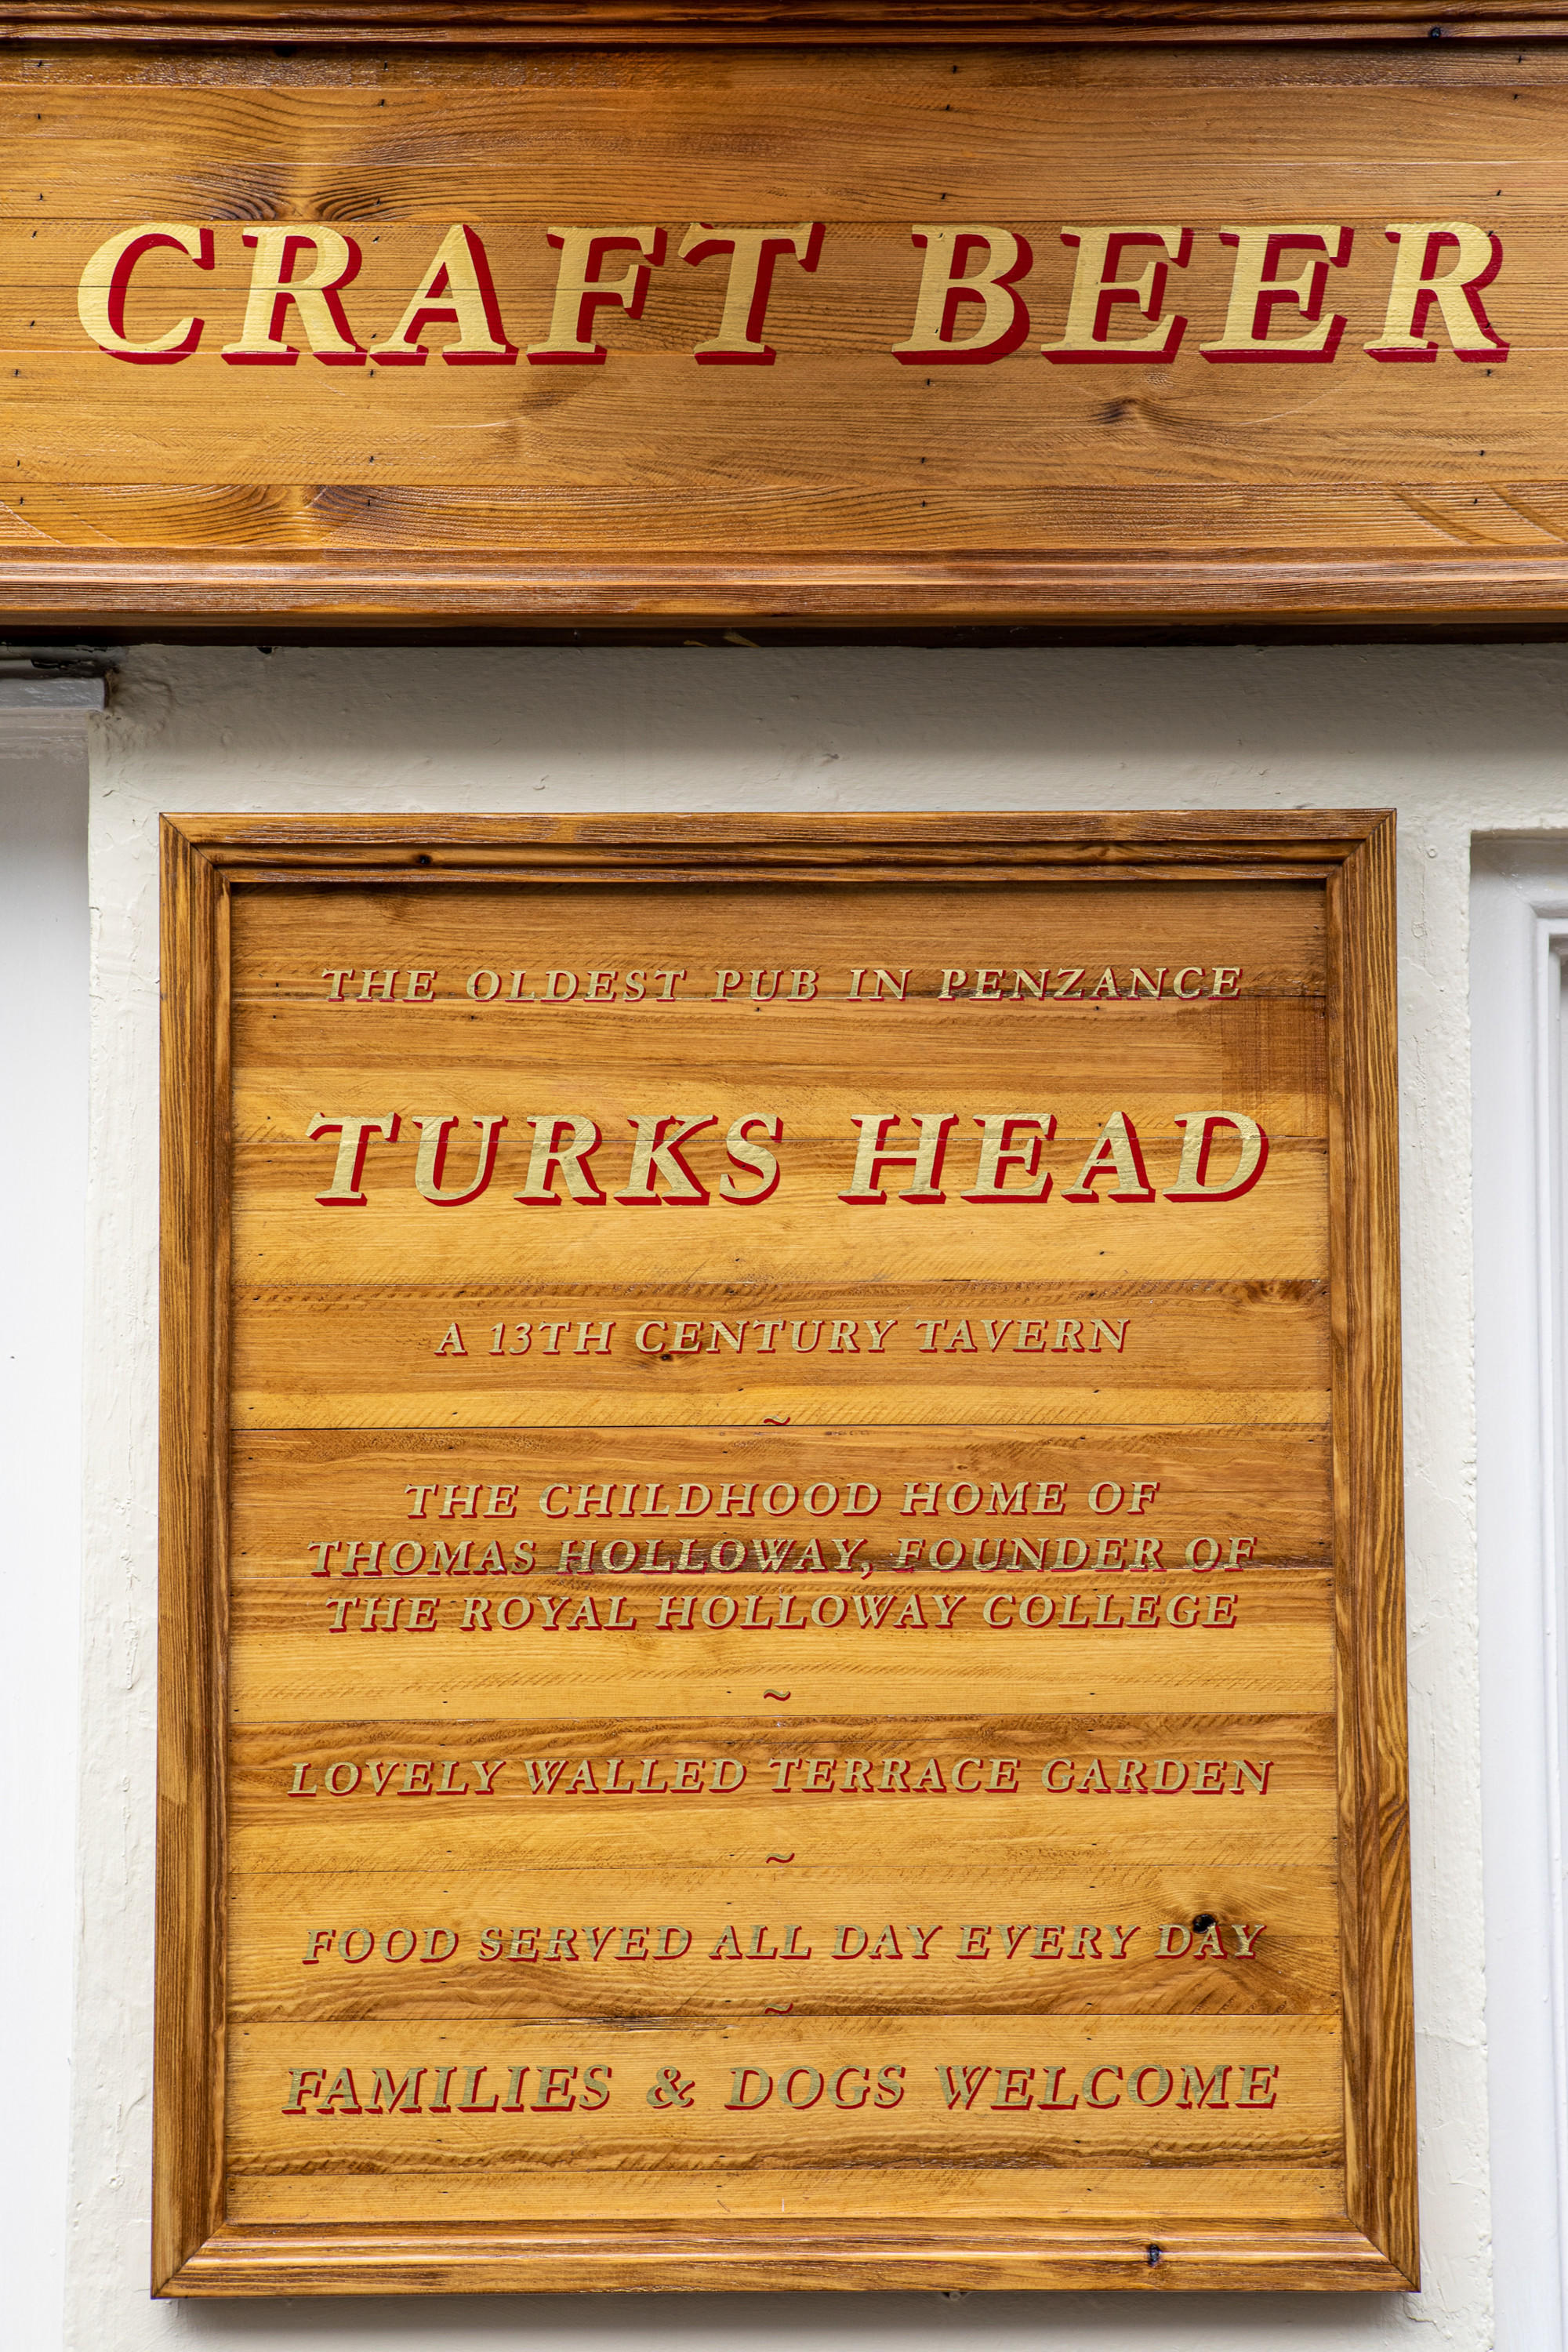 CRAFT BEER
THE OLDEST PUB IN PENZANCE
TURKS HEAD
A 13TH CENTURY TAVERN
~
THE CHILDHOOD HOME OF
THOMAS HOLLOWAY, FOUNDER OF
THE ROYAL HOLLOWAY COLLEGE
~
LOVELY WALLED TERRACE GARDEN
~
FOOD SERVED ALL DAY EVERY DAY
~
FAMILIES & DOGS WELCOME